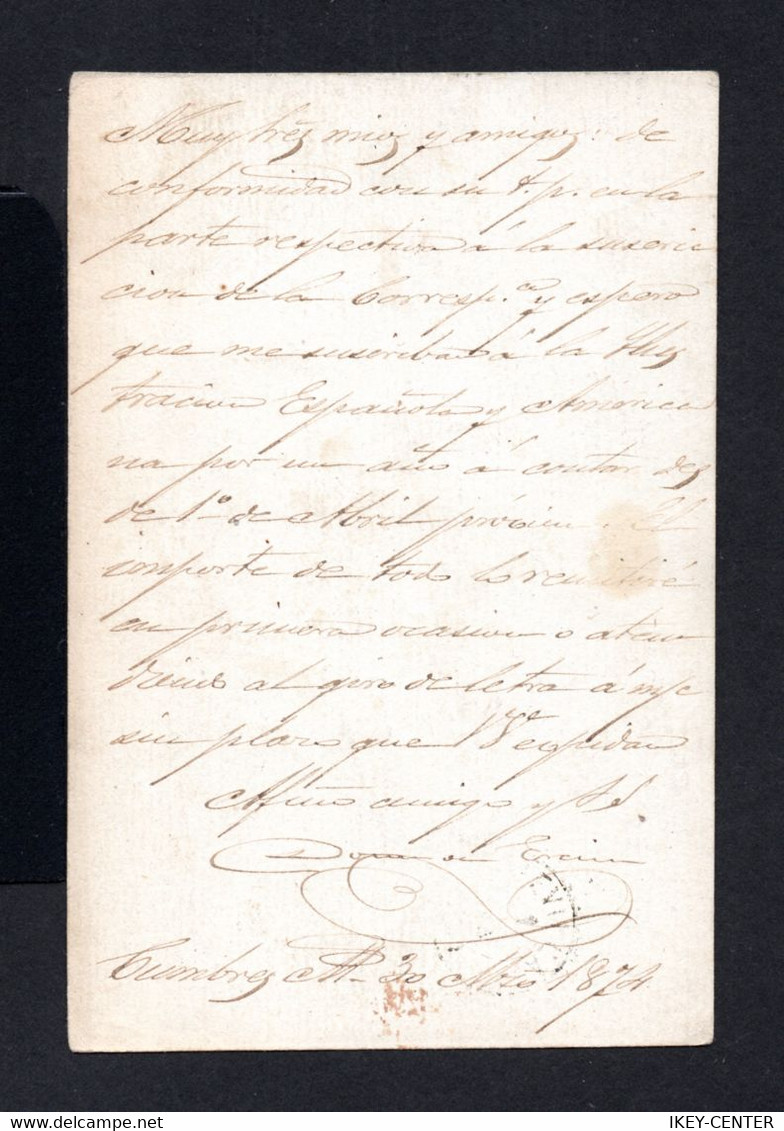 Muy Sres mios y amigos: de
conformidad con su t. p. en la
parte respectiva á la suscri
cion de la Corresp.ca y espero
que me suscriban á la Ilus
tracion Española y America
na por un año á contar des
de 1º de Abril próximo. El
importe de todo lo remitiré
en primera ocasion o aten
diendo al giro de letra á m/c
sin plazo que Vds expidan
Afmo amigo y
Cumbres My. 30 Mzo 1874
IKEY-CENTER